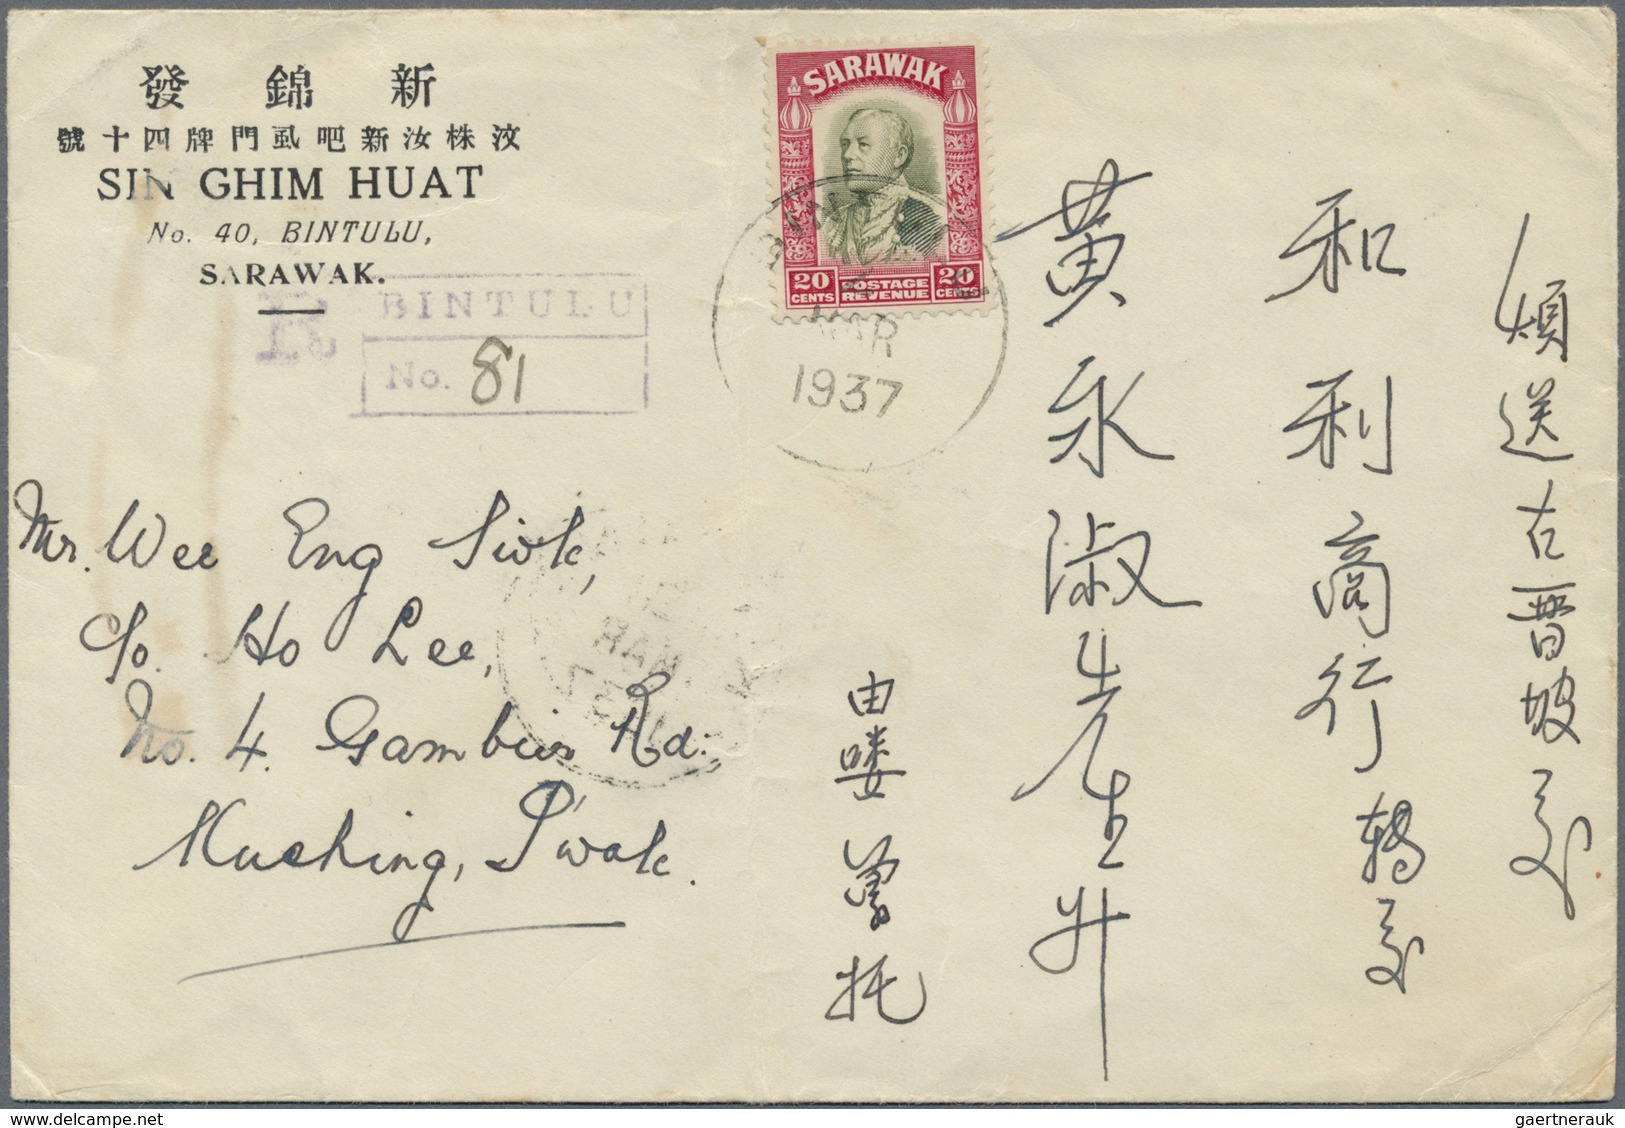 發 錦 新
號十四牌門虱吧新汝株汶
SIN GHIM HUAT
No. 40, BINTULU,
SARAWAK.
R
BINTULU
No. 81
SARAWAK
20 CENTS
POSTAGE REVENUE
20 CENTS
MAR
1937
Mr. Wee Eng Siok,
c/o. Ho Lee,
No. 4. Gambier Rd.
Kuching, S'wak.
MAR
煩送古晋坡交
和利商行轉交
黄永淑先生升
由嘍 托
delcampe.net
gaertnerauk